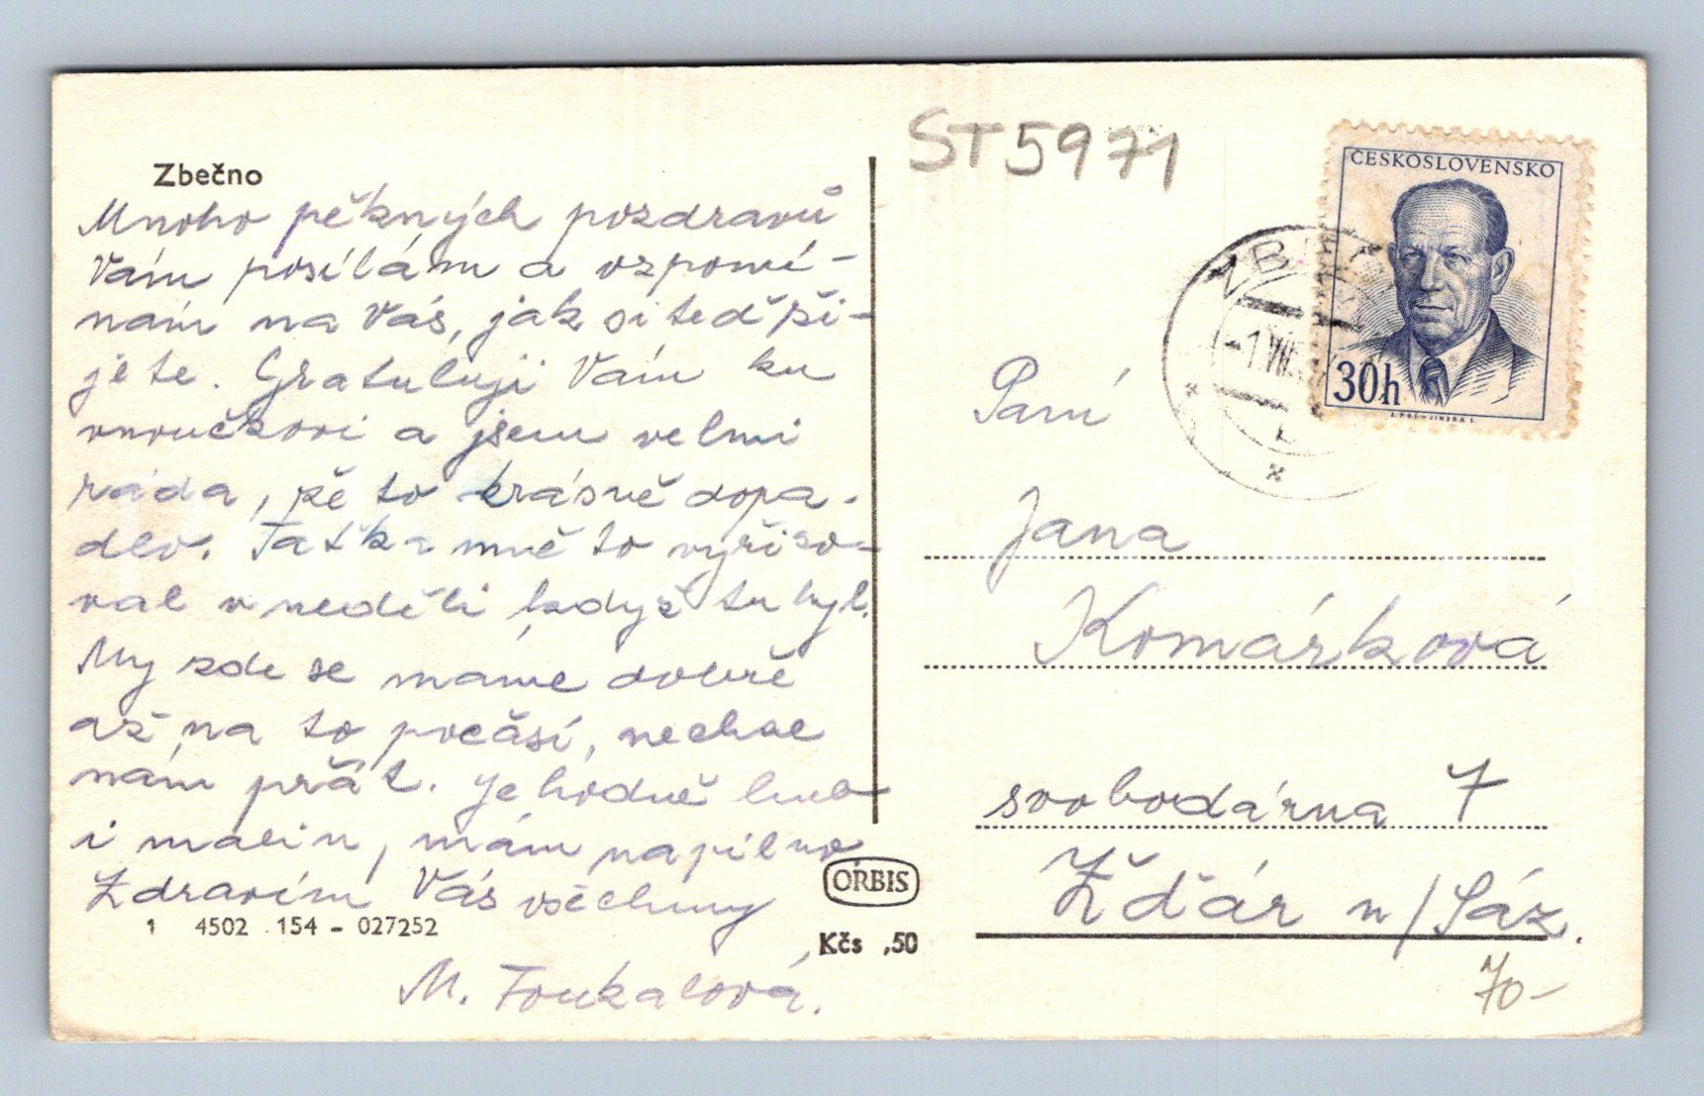 Zbečno
Mnoho pěkných pozdravů
Vám posílám a vzpomí-
nám na Vás, jak si teď ži-
jete. Gratuluji Vám ku
vnoučkovi a jsem velmi
ráda, žě to krásně dopa-
dlo. Taťka mně to vyřiso-
val v neděli když tu byl.
My zde se máme dobře
až na to počasí, nechce
nám přát. Je hodně hub
i malin, mám napilno
Zdravím Vás všechny
M. Foukalová.
1 4502 154 - 027252
ORBIS
Kčs ,50
ST5971
ČESKOSLOVENSKO
30h
-1.VII.
Paní
Jana
Komárková
svobodárna 7
Žďár n/Sáz.
70-